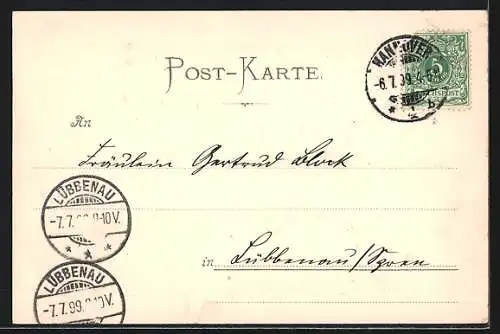 POST-KARTE.
HANNOVER
-6.7.99.4-5N.
* 1 b
5
An
Fräulein Gertrud Block
LÜBBENAU
-7.7.99.8-10V.
in Lübbenau/Spree
LÜBBENAU
-7.7.99.8-10V.